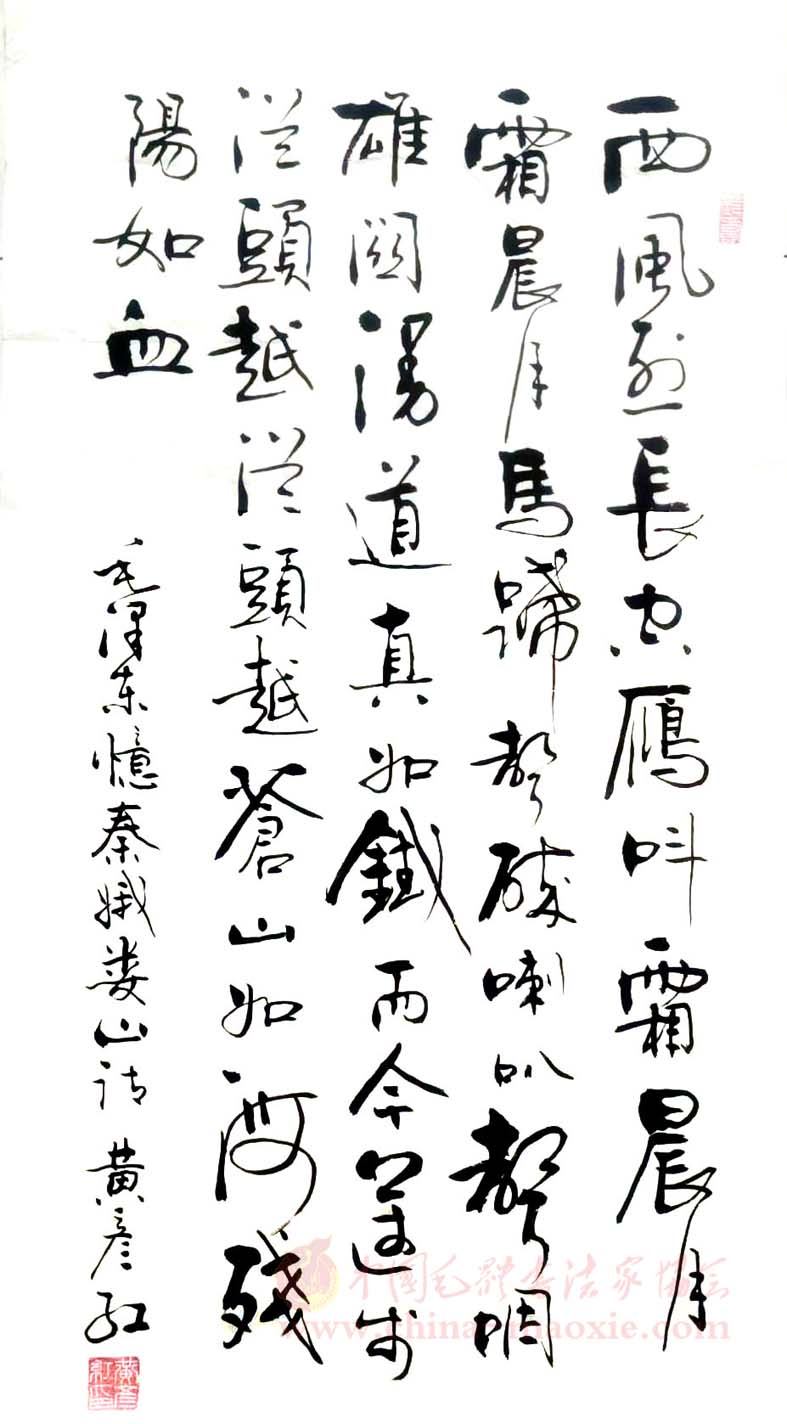 西風烈長空鴈叫霜晨月
霜晨月馬蹄聲碎喇叭聲咽
雄關漫道真如鐵而今邁步
從頭越從頭越蒼山如海殘
陽如血
毛澤东憶秦娥娄山诗 黄彦红
中国毛體书法家协会
www.chinamaoxie.com